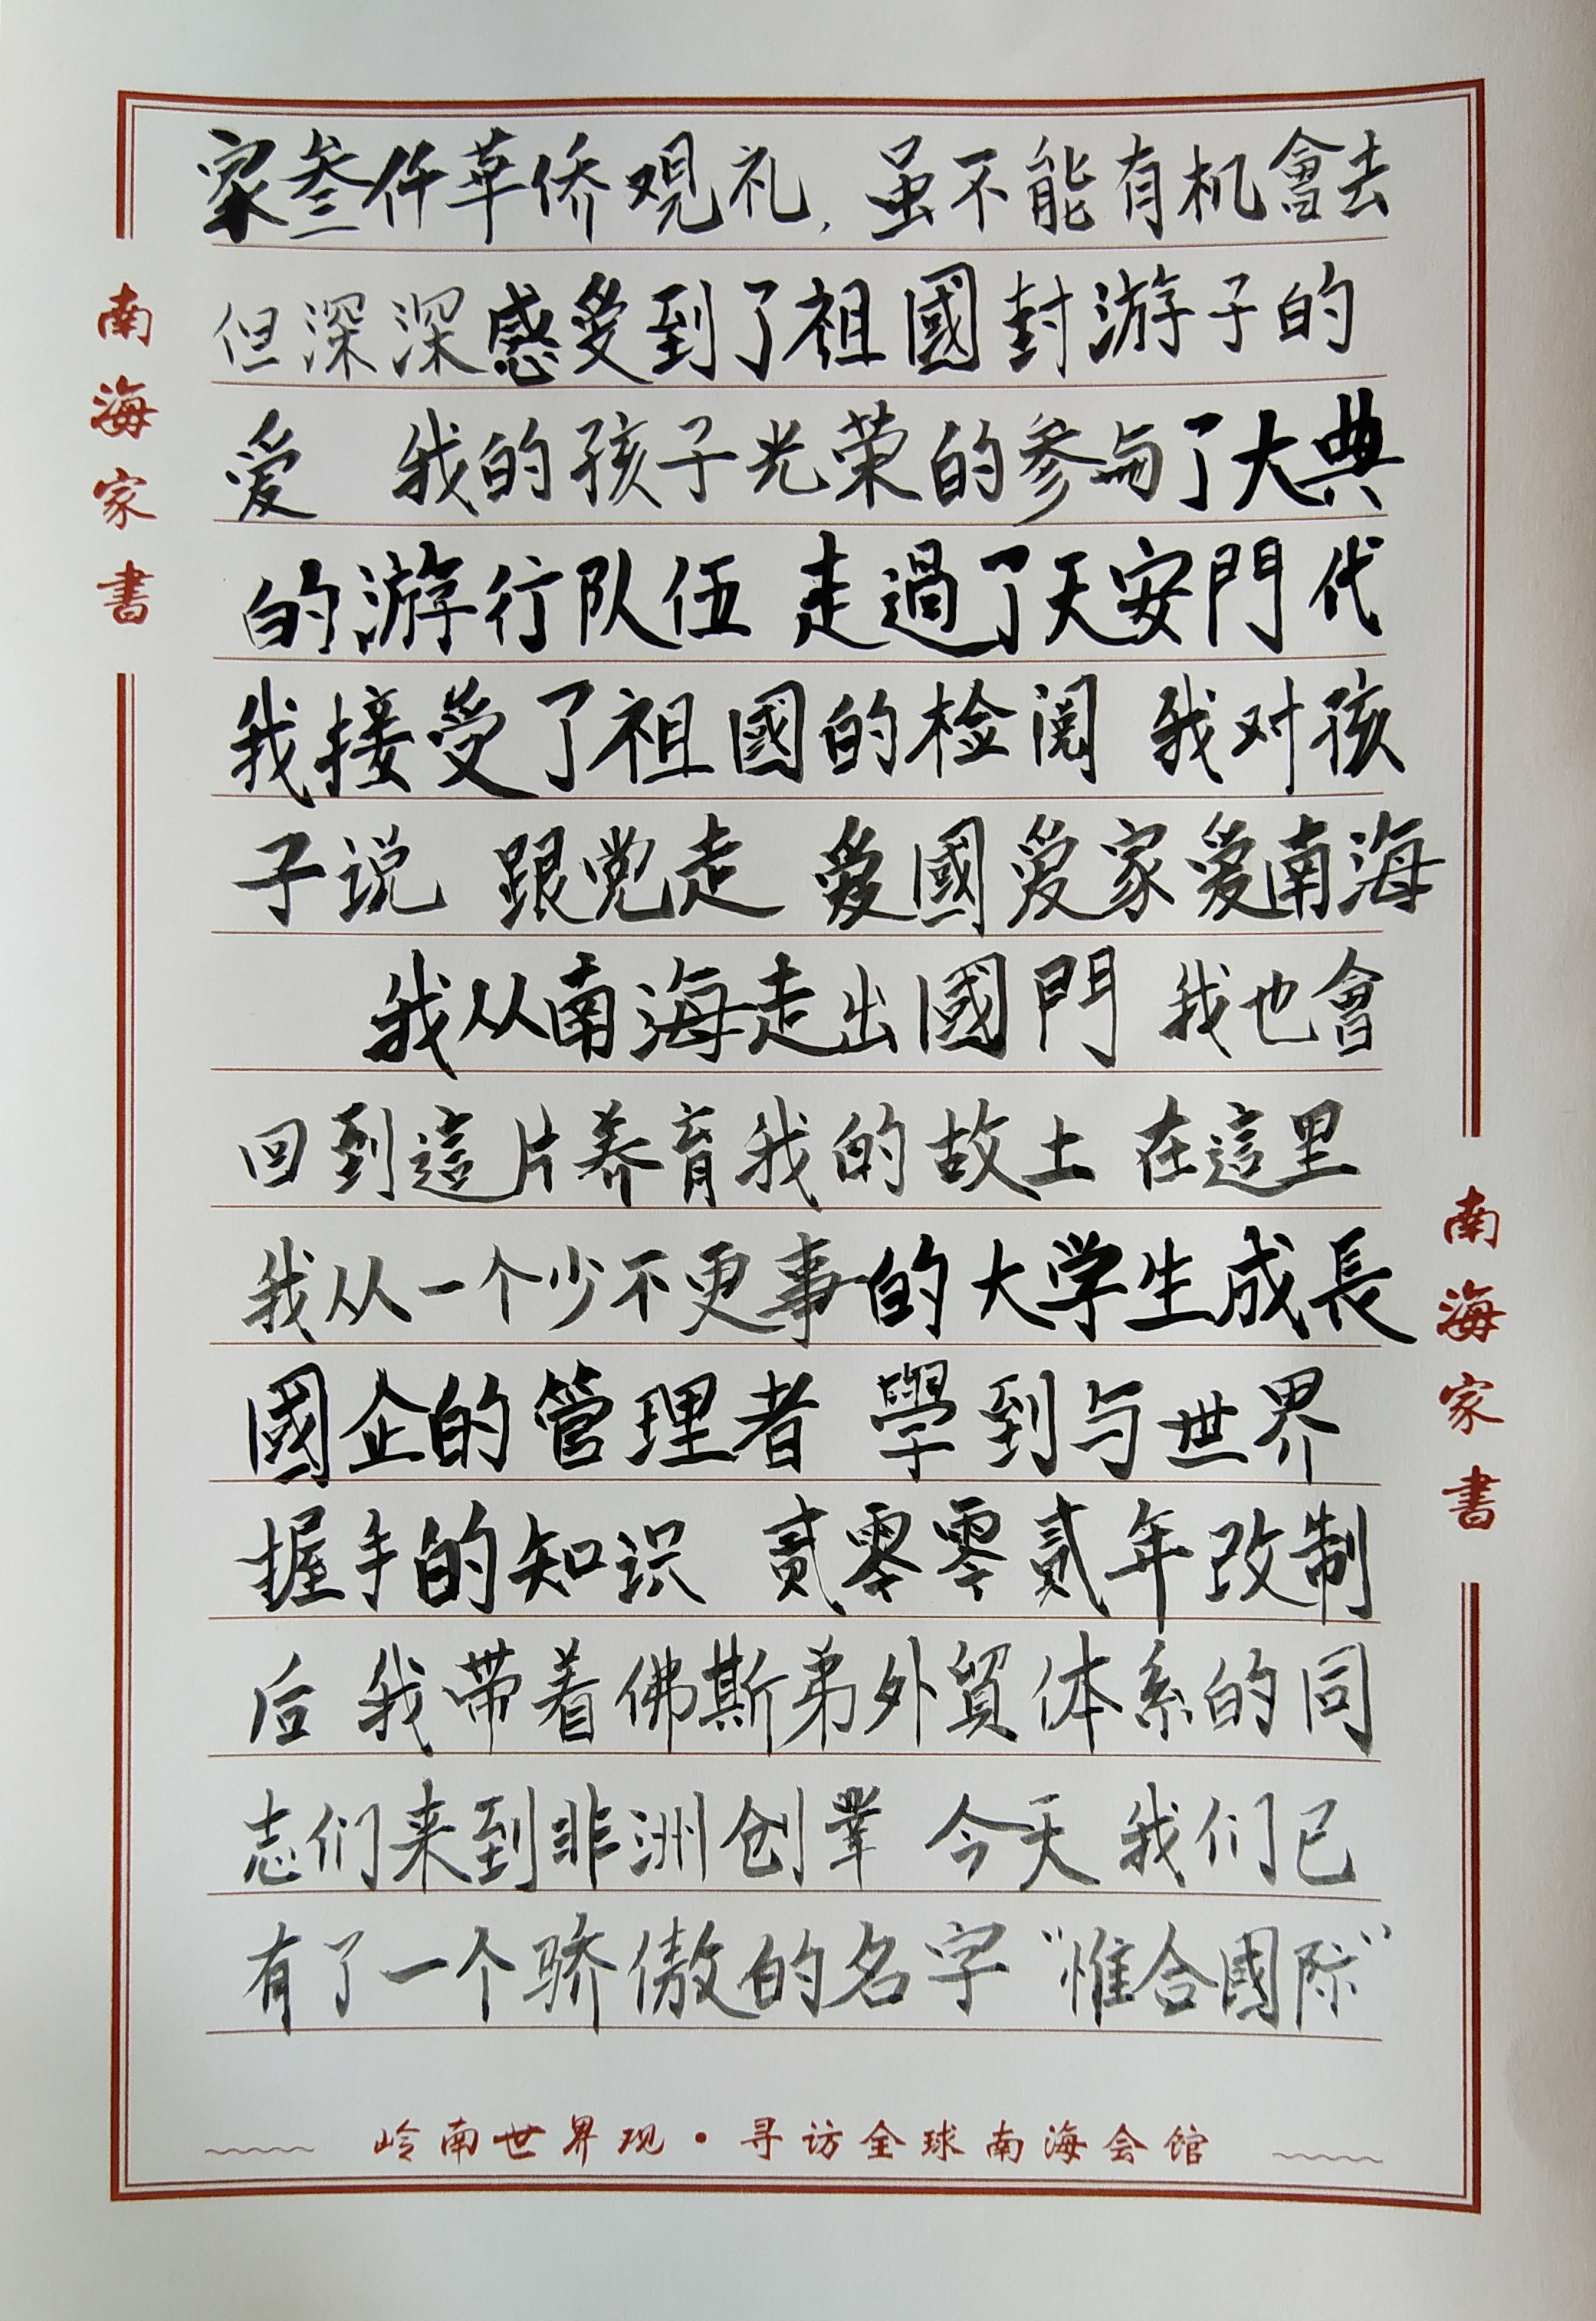 家叁仟华侨观礼，虽不能有机會去
但深深感受到了祖國封游子的
爱 我的孩子光荣的参与了大典
的游行队伍 走過了天安門代
我接受了祖國的检阅 我对孩
子说 跟党走 爱國爱家爱南海
我从南海走出國門 我也會
回到這片养育我的故土 在這里
我从一个少不更事的大学生成長
國企的管理者 學到与世界
握手的知识 贰零零贰年改制
后 我带着佛斯弟外貿体系的同
志们来到非洲创業 今天 我们已
有了一个骄傲的名字“惟合國际”
南海家書
南海家書
岭南世界观·寻访全球南海会馆